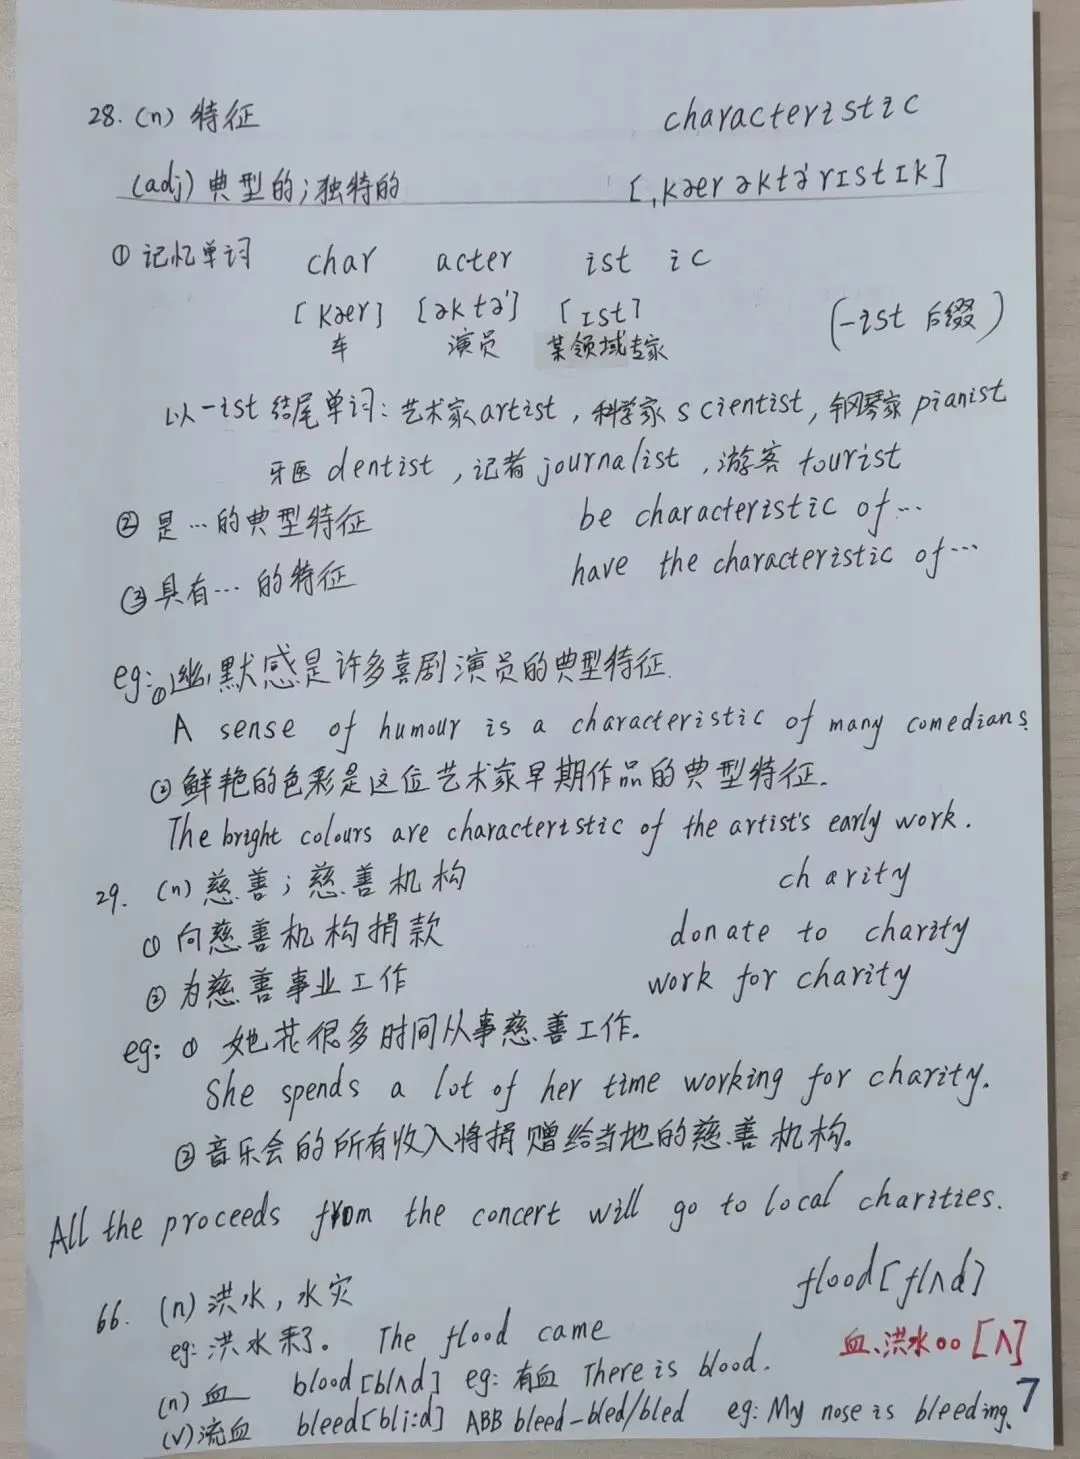 28. (n) 特征 characteristic
(adj) 典型的；独特的 [ˌkærəktəˈrɪstɪk]
① 记忆单词 char acter ist ic
[kær] [əktə'] [ɪst] (-ist 后缀)
车 演员 某领域专家
以-ist 结尾单词：艺术家artist，科学家scientist，钢琴家pianist
牙医 dentist，记者 journalist，游客 tourist
② 是…的典型特征 be characteristic of…
③ 具有…的特征 have the characteristic of…
eg:①幽默感是许多喜剧演员的典型特征.
A sense of humour is a characteristic of many comedians.
②鲜艳的色彩是这位艺术家早期作品的典型特征.
The bright colours are characteristic of the artist's early work.
29. (n) 慈善；慈善机构 charity
① 向慈善机构捐款 donate to charity
② 为慈善事业工作 work for charity
eg: ① 她花很多时间从事慈善工作.
She spends a lot of her time working for charity.
②音乐会的所有收入将捐赠给当地的慈善机构。
All the proceeds from the concert will go to local charities.
66. (n) 洪水，水灾 flood [flʌd]
eg: 洪水来了。 The flood came
血、洪水oo [ʌ]
(n) 血 blood [blʌd] eg: 有血 There is blood.
(v) 流血 bleed [bli:d] ABB bleed-bled/bled eg: My nose is bleeding.
7